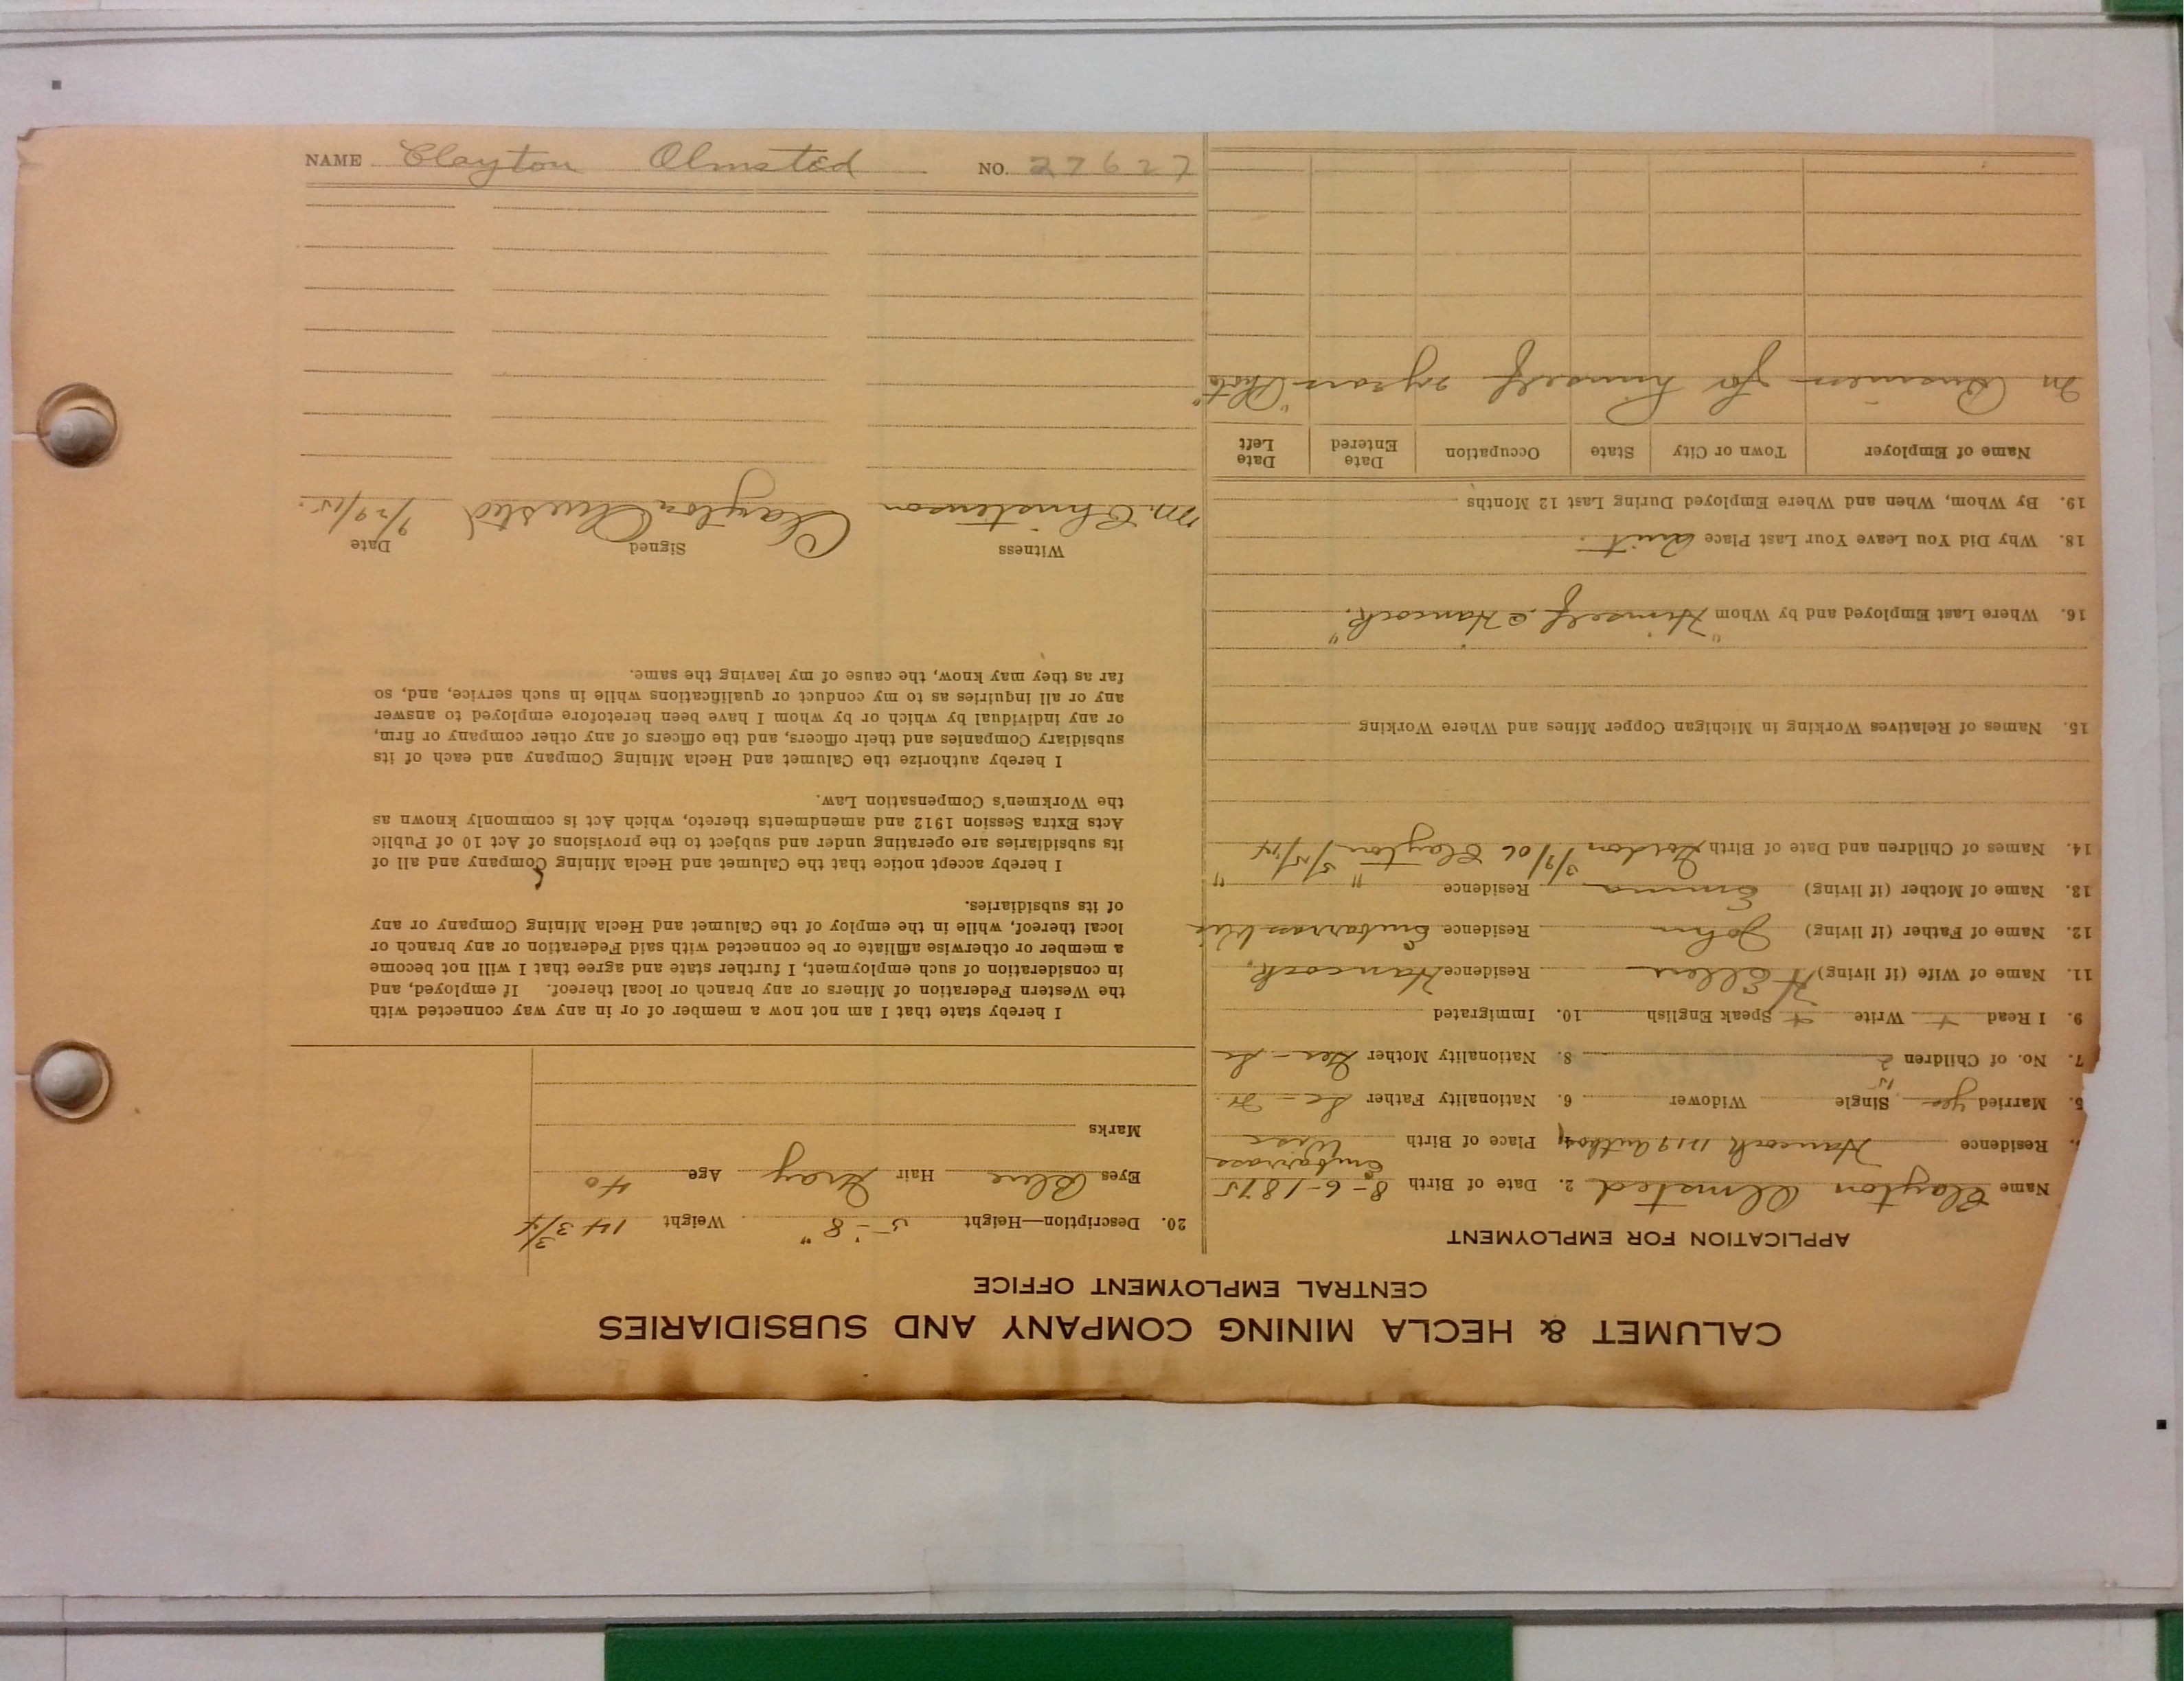 CALUMET & HECLA MINING COMPANY AND SUBSIDIARIES
CENTRAL EMPLOYMENT OFFICE
APPLICATION FOR EMPLOYMENT
Name Clayton Olmsted 2. Date of Birth 8-6-1875
Residence Hancock 1219 Place of Birth Embarrass Wisc
5. Married yes 15 Single Widower 6. Nationality Father
7. No. of Children 2 8. Nationality Mother
9. I Read + Write + Speak English 10. Immigrated
11. Name of Wife (if living) Residence Hancock.
12. Name of Father (if living) John Residence Embarrass Wis
13. Name of Mother (if living) Emma Residence " "
14. Names of Children and Date of Birth Gordon 3/9/06 Clayton 5/15/14
15. Names of Relatives Working in Michigan Copper Mines and Where Working
16. Where Last Employed and by Whom "Himself @ Hancock."
18. Why Did You Leave Your Last Place Quit.
19. By Whom, When and Where Employed During Last 12 Months
Name of Employer Town or City State Occupation Date Entered Date Left
In Business for himself years
20. Description—Height 5'-8" Weight 143 3/4
Eyes Blue Hair Gray Age 40
Marks
I hereby state that I am not now a member of or in any way connected with
the Western Federation of Miners or any branch or local thereof. If employed, and
in consideration of such employment, I further state and agree that I will not become
a member or otherwise affiliate or be connected with said Federation or any branch or
local thereof, while in the employ of the Calumet and Hecla Mining Company or any
of its subsidiaries.
I hereby accept notice that the Calumet and Hecla Mining Company and all of
its subsidiaries are operating under and subject to the provisions of Act 10 of Public
Acts Extra Session 1912 and amendments thereto, which Act is commonly known as
the Workmen's Compensation Law.
I hereby authorize the Calumet and Hecla Mining Company and each of its
subsidiary Companies and their officers, and the officers of any other company or firm,
or any individual by which or by whom I have been heretofore employed to answer
any or all inquiries as to my conduct or qualifications while in such service, and, so
far as they may know, the cause of my leaving the same.
Witness Signed Date
M. Christenson Clayton Olmsted 9/29/15.
NAME Clayton Olmsted NO. 27627